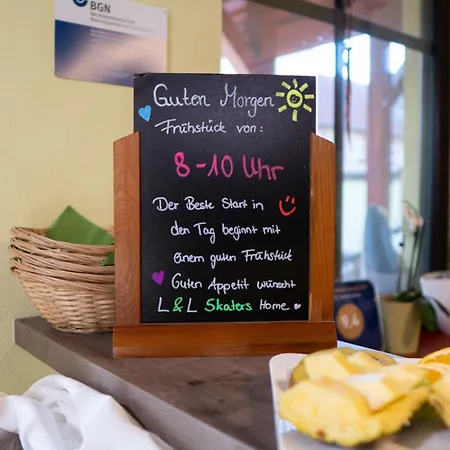 BGN
Guten Morgen
Frühstück von:
8-10 Uhr
Der Beste Start in
den Tag beginnt mit
einem guten Frühstück
Guten Appetit wünscht
L&L Skaters Home